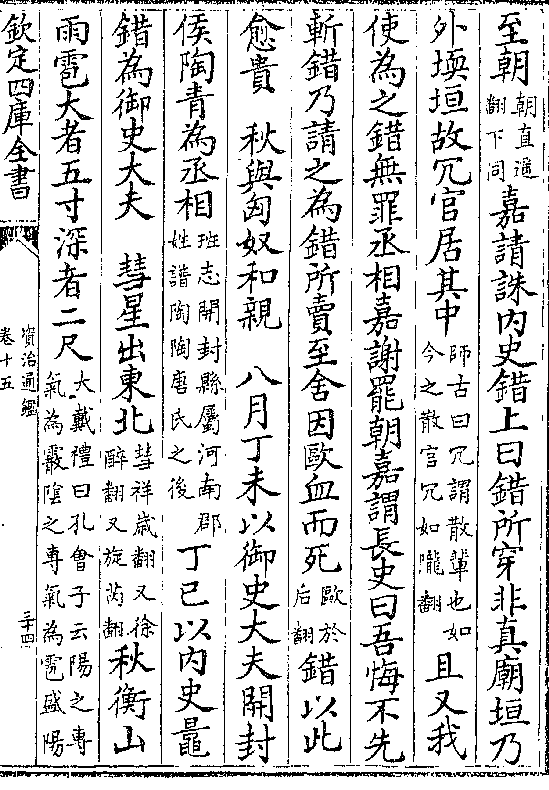 至朝朝直遥翻下同嘉請誅内史錯上曰錯所穿非真廟垣乃
外堧垣故冗官居其中師古曰冗謂散輩也如今之散官冗如隴翻且又我
使為之錯無罪丞相嘉謝罷朝嘉謂長史曰吾悔不先
斬錯乃請之為錯所賣至舍因歐血而死歐於后翻錯以此
愈貴　秋與匈奴和親　八月丁未以御史大夫開封
侯陶青為丞相班志開封縣屬河南郡姓譜陶陶唐氏之後丁巳以内史鼂
錯為御史大夫　彗星出東北彗祥歲翻又徐醉翻又旋芮翻秋衡山
雨雹大者五寸深者二尺大戴禮曰孔會子云陽之專氣為霰陰之專氣為雹盛陽
欽定四庫全書
資治通鑑
卷十五
三十四